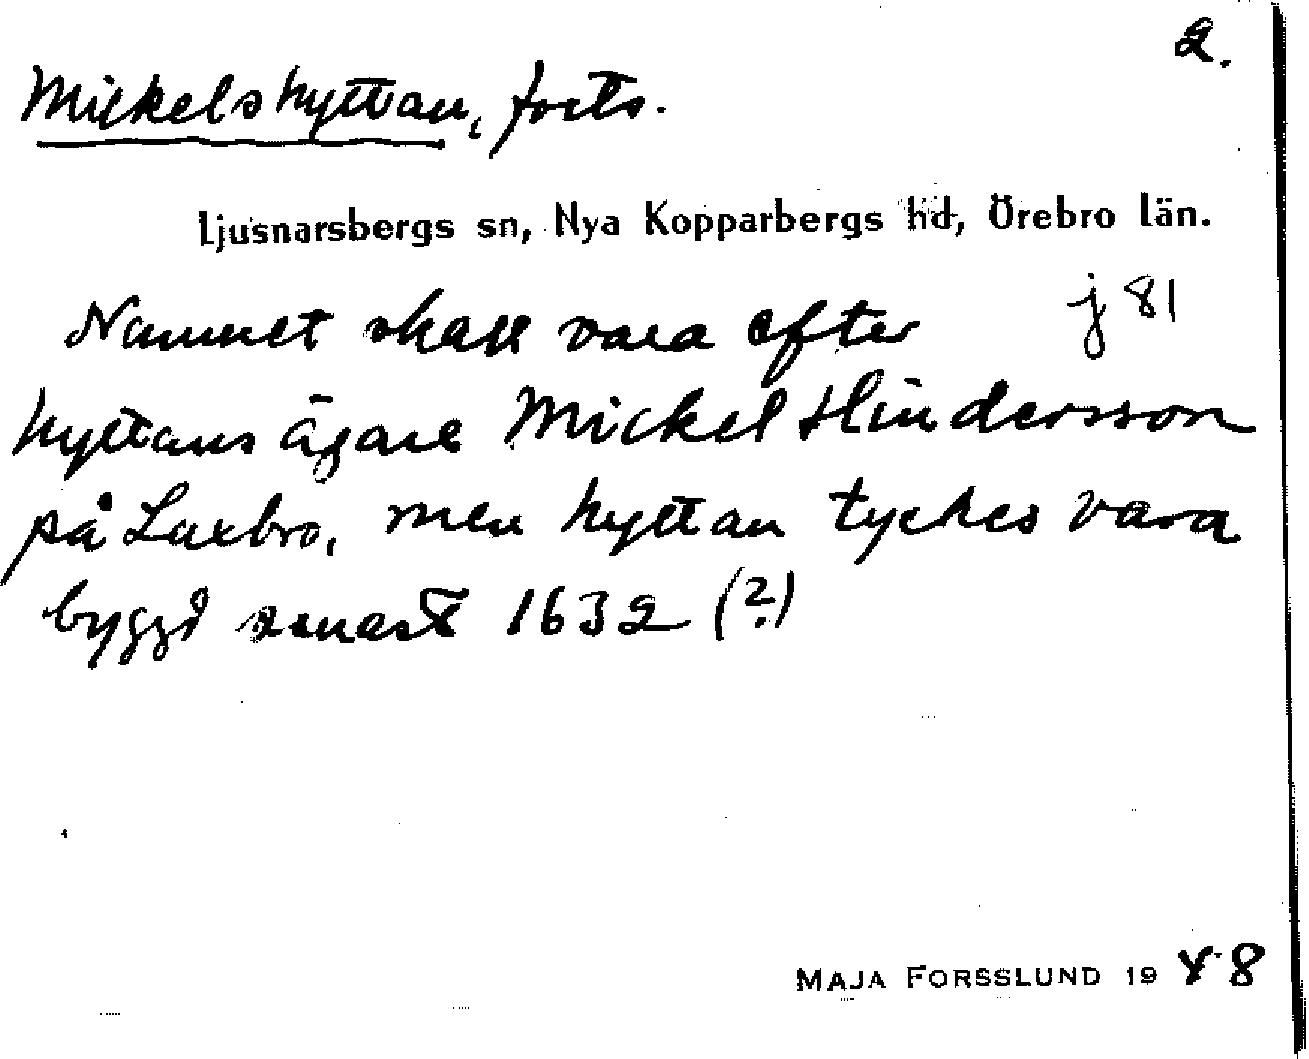 2.
Mickelshyttan, forts.
Ljusnarsbergs sn, Nya Kopparbergs hd, Örebro län.
Namnet skall vara efter j 81
hyttans ägare Mickel Hindersson
på Laxbro, men hyttan tyckes vara
byggd senast 1632 (?)
MAJA FORSSLUND 19 48